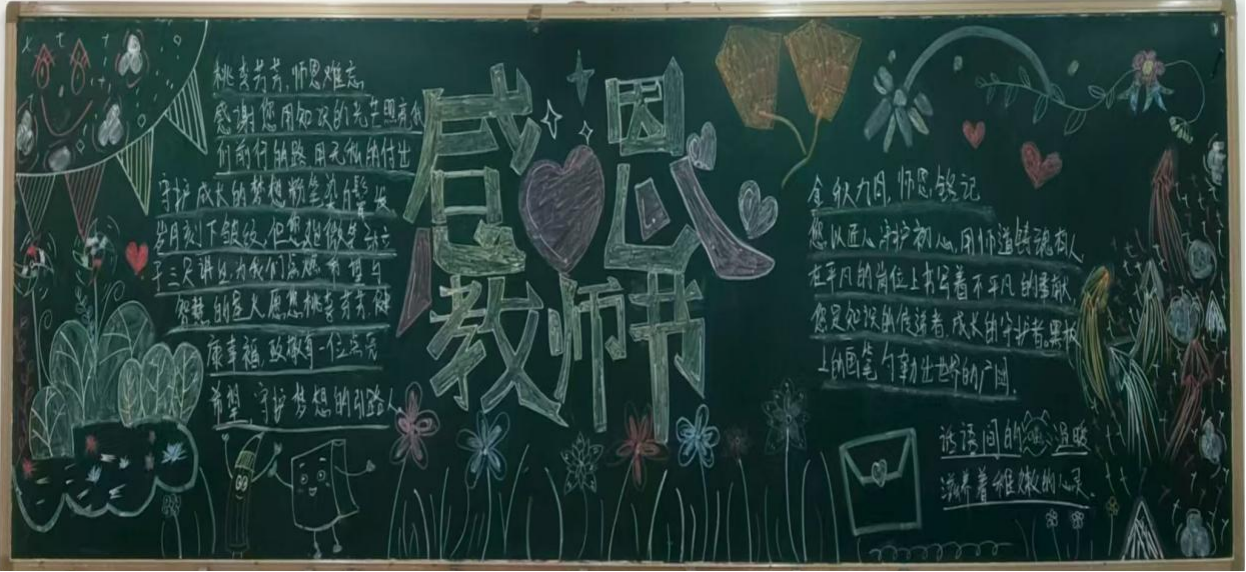 桃李芬芳,师恩难忘
感谢您用知识的光芒照亮我
们前行的路,用无私的付出
守护成长的梦想粉笔染白鬓发
岁月刻下皱纹,但您始终
于三尺讲台,为我们点燃希望与
智慧的星火愿您桃李芬芳,健
康幸福,致敬每一位点亮
希望、守护梦想的引路人
感恩
教师节
金秋九月,师恩铭记
您以匠心守护初心,用师道铸魂育人
在平凡的岗位上书写着不平凡的奉献,
您是知识的传播者,成长的守护者。黑板
上的画笔勾勒出世界的广阔,
话语间的温暖
滋养着稚嫩的心灵。